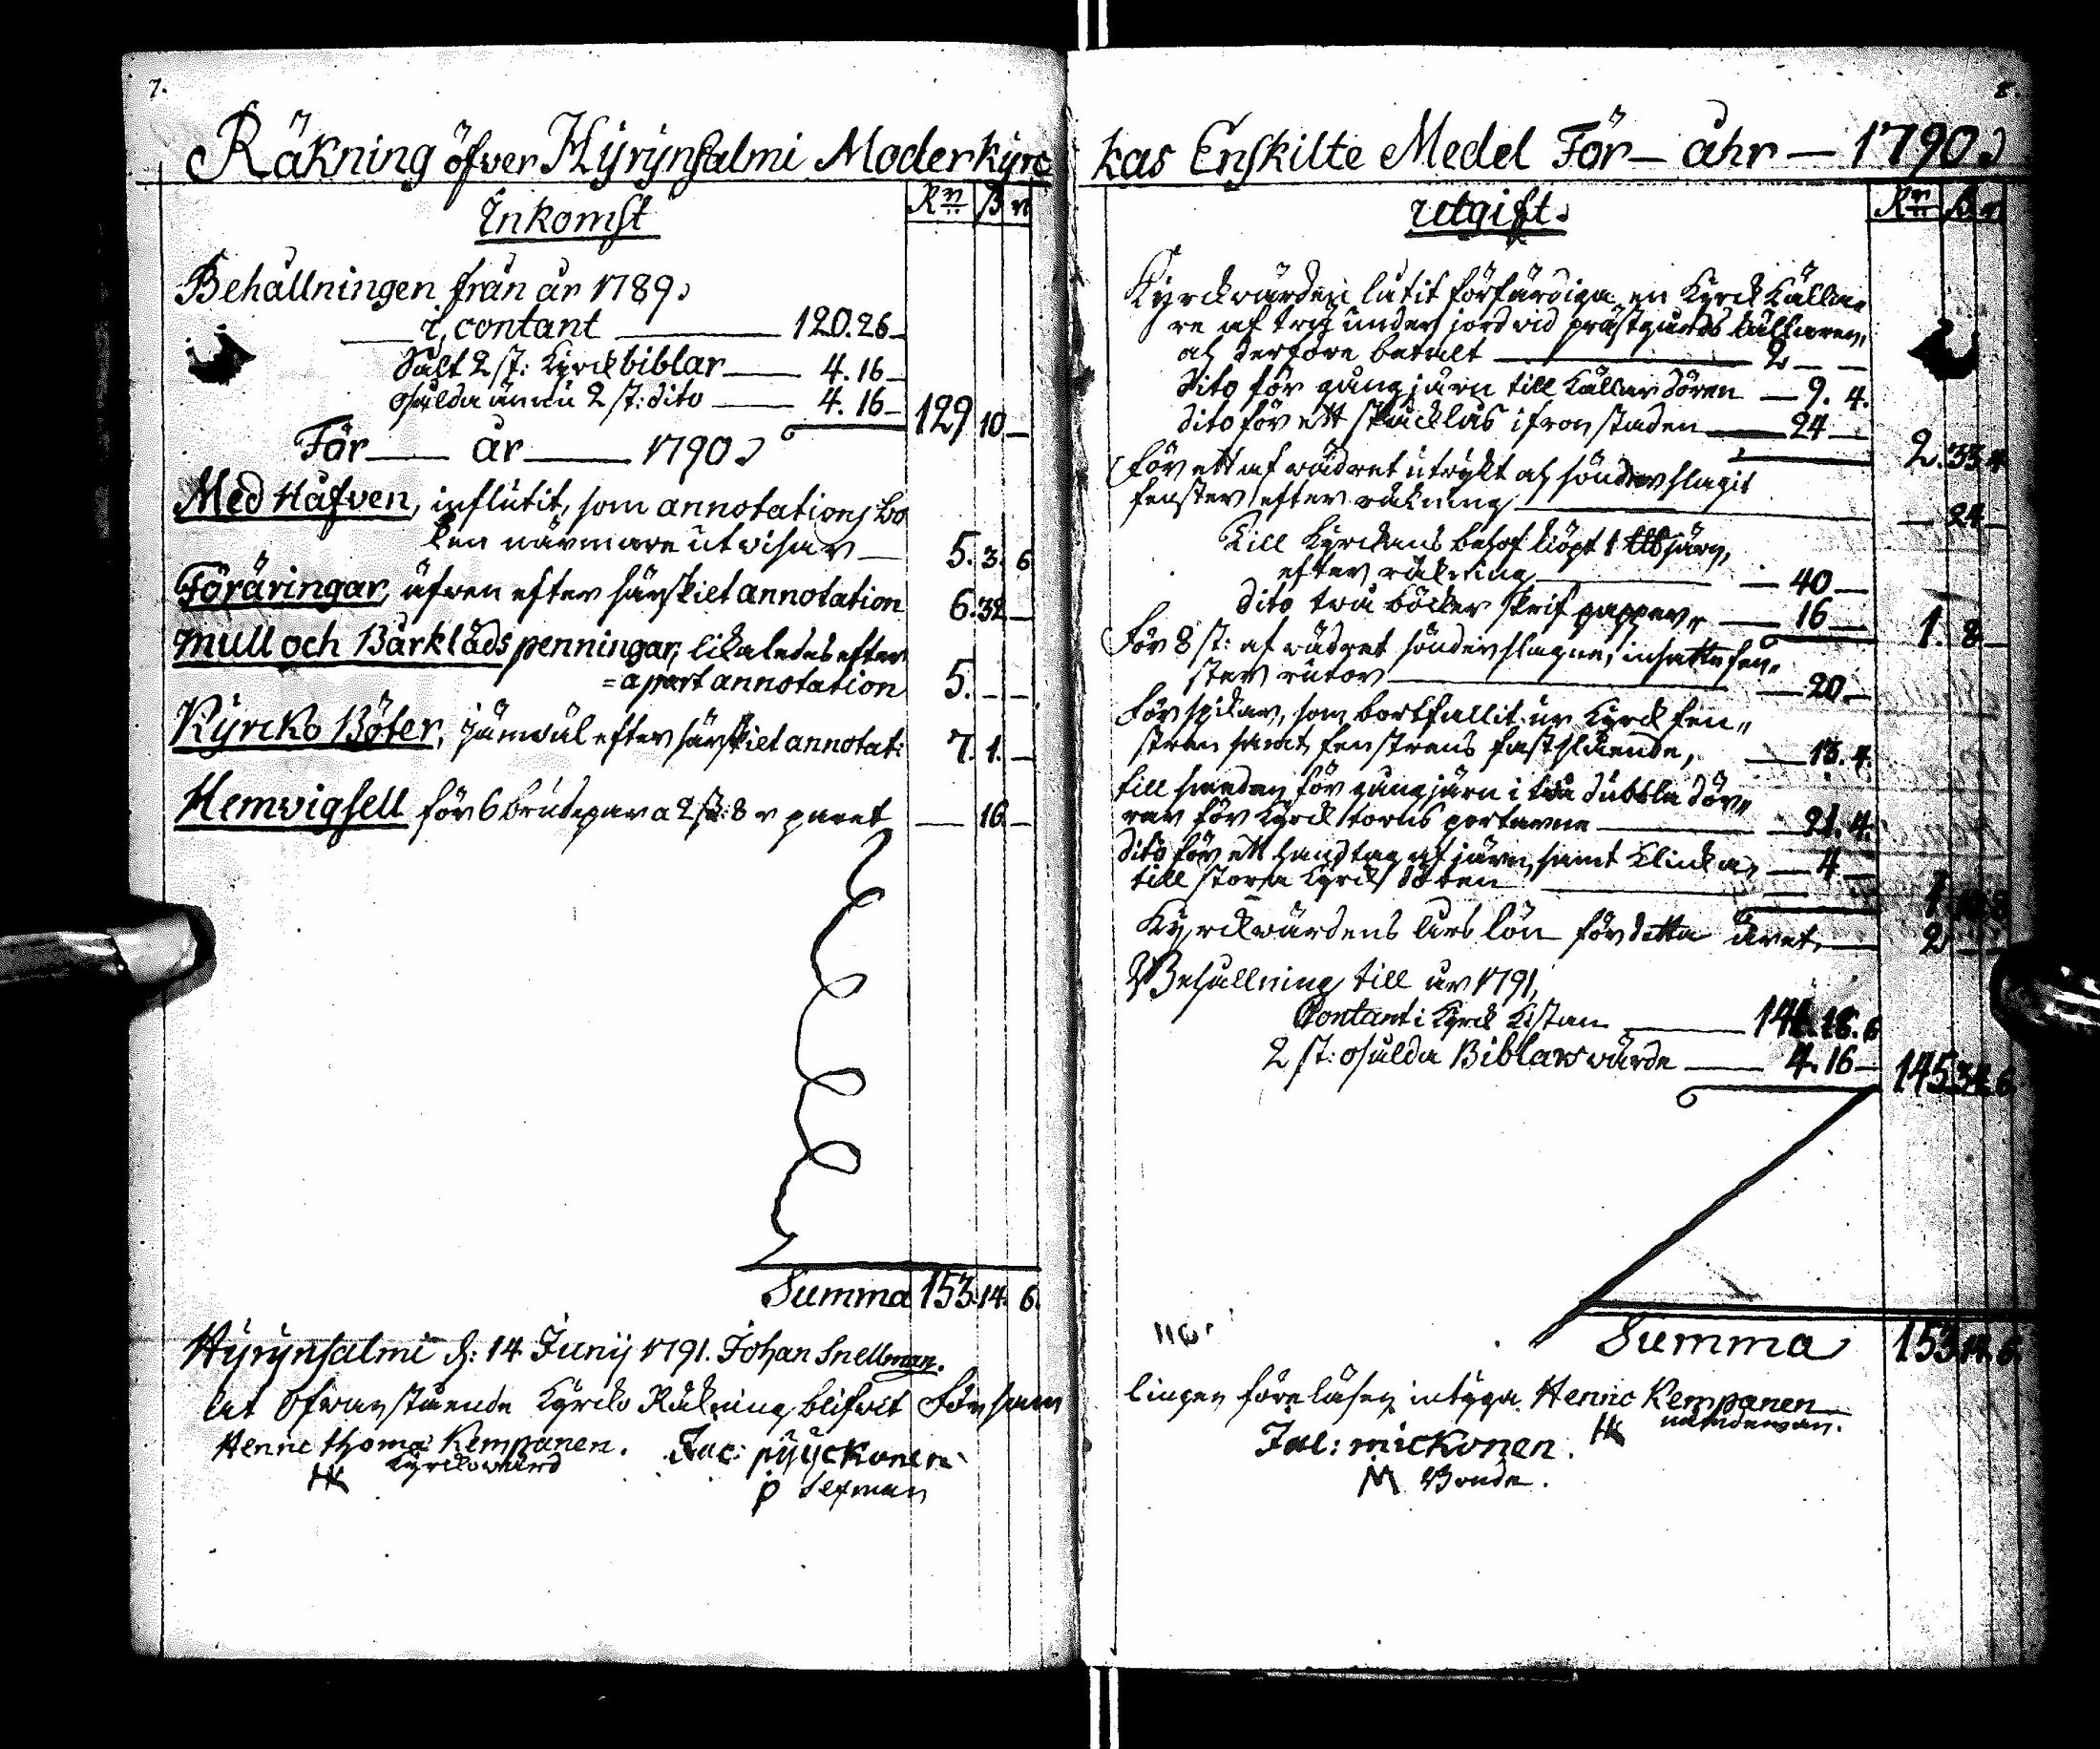 7.
Räkning öfver Hyrynsalmi Moderkyrc
Inkomst
Rn ß n
Behållningen från år 1789.
i contant — 120.26 —
Sålt 2 st: Kyrck biblar — 4.16 —
osulda ännu 2 st: dito — 4.16 — 129 10 —
För — år — 1790.
Med Håfven, influtit, som annotations bo
ken närmare utvisar — 5. 3. 6
Föräringar, äfven efter särskiet annotation 6. 32 —
Mull och Bårklåds penningar, likaledes efter
= apart annotation 5. — —
Kyrcko Böter, jämväl efter särskiet annotat: 7. 1. —
Hemvigsell för 6 brudepar a 2 ß: 8 r paret — 16. —
Summa 153. 14. 6.
Hyrynsalmi d: 14 Junij 1791. Johan Snellman.
At Ofvanstående Kyrcko Räkning blifvit Församm
Henric Thomæ Kempanen. Jac: pyyckönen
HK Kyrckovärd p Sexman
8.
kas Enskilte Medel För — åhr — 1790.
Utgift.
Rn ß n
Kyrckvärden låtit förfärdiga en Kyrck Källa-
re af trä under jord vid prästgårds källaren,
och derföre betalt — 2 — —
Dito för gångjärn till Källar dören — 9. 4.
Dito för ett stäcklås ifron staden — 24 — 2. 33 4
För ett af vädret utryckt och sönderslagit
fenster efter räkning — — 24 —
Till Kyrckans behof köpt 1 Lb järn,
efter räkning — 40 —
Dito två böcker skrif papper — 16 — 1. 8 —
För 8 st: af vädret sönderslagne, insatte fen-
ster rutor — 20 —
För spikar, som bortfallit ur Kyrck fen-
stren samt fenstrens fastslående, — 13. 4.
till smeden för gångjärn i två dubbla dör-
rar för Kyrck torns portarne — 21. 4.
Dito för ett handtag af järn, samt Klincka, — 4 —
till stora Kyrck dören
Kyrckvärdens års lön för detta året, — 2 —
Behållning till år 1791,
Contant i Kyrck Kistan — 141. 18. 6
2 st: osulda Biblars värde — 4. 16 — 145 34. 6
Summa 153 14. 6.
lingen föreläsen intyga Henric Kempanen
HK nämdeman.
Jal: mickonen.
M Bonde.